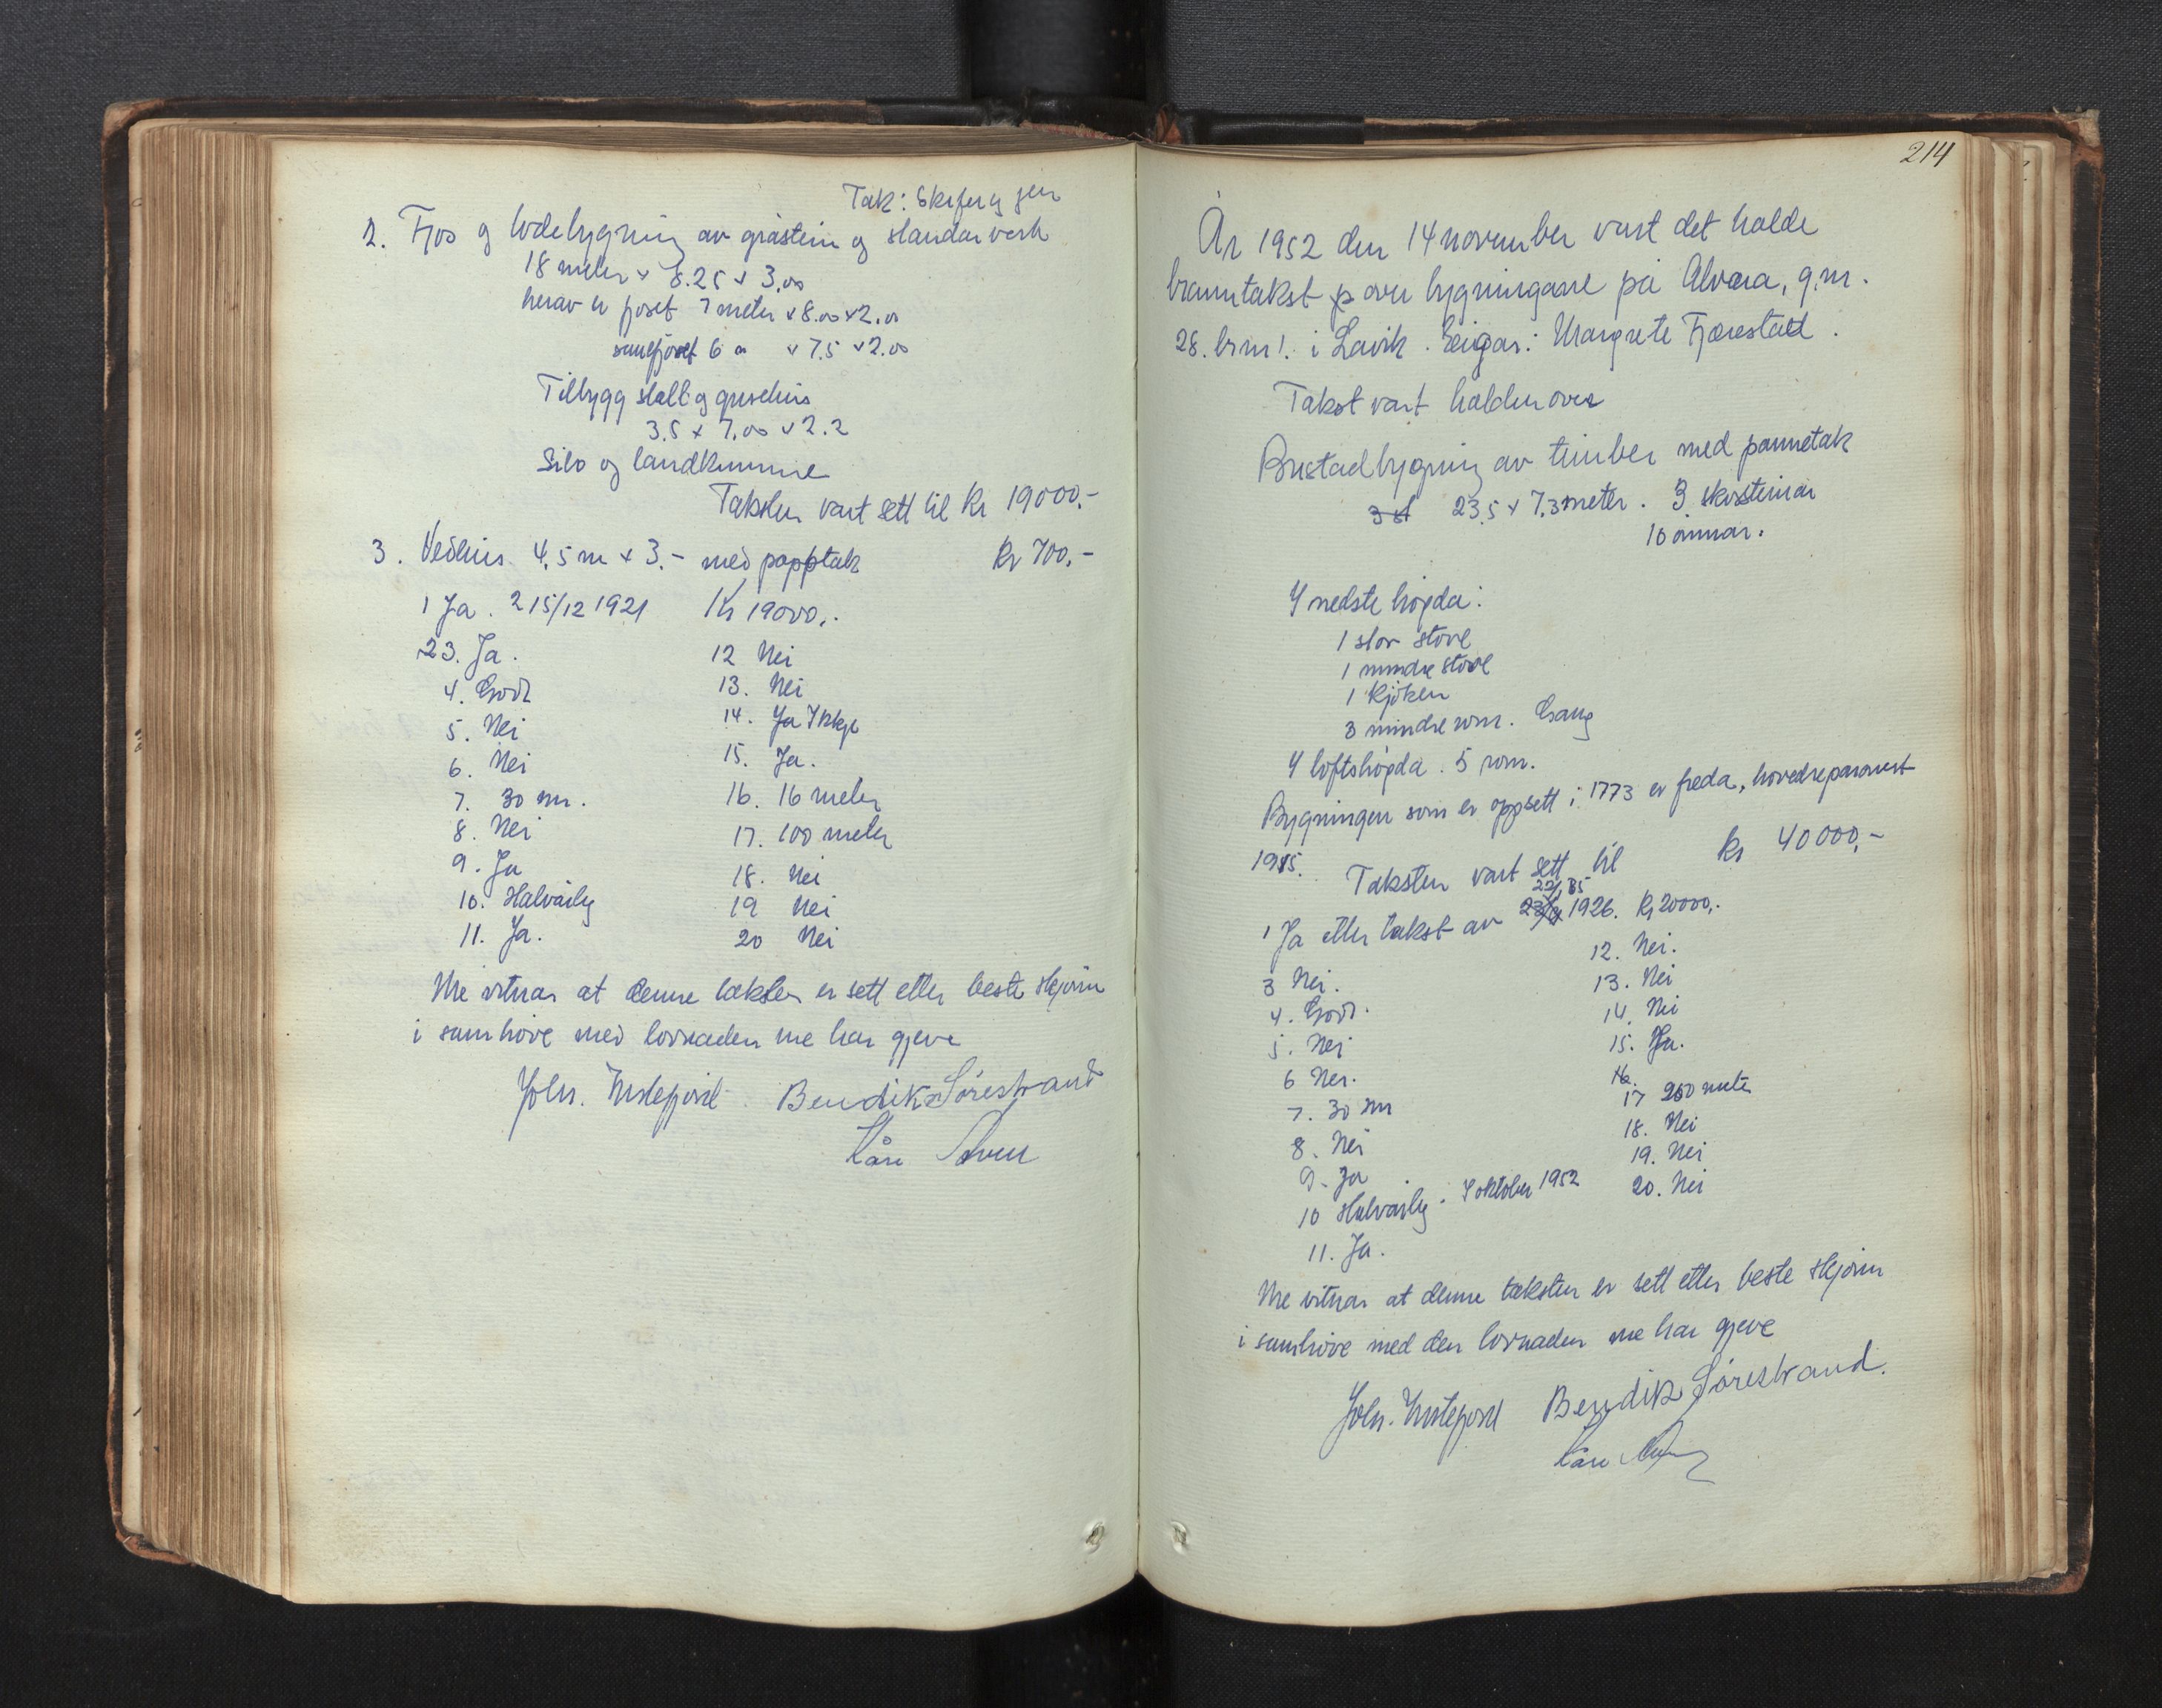 Tak: Skifer og jern
2. Fjos og lødebygning av gråstein og standarverk
18 meter x 8.25 x 3.00
herav er fjoset 7 meter x 8.00 x 2.00
sauefjoset 6 " x 7.5 x 2.00
Tilbygg stall og grisehus
3.5 x 7.00 x 2.2
Silo og landkumme
Taksten vart sett til Kr 19000.-
3. Vedhus 4,5 m x 3.- med papptak Kr 700.-
1 Ja. 2 15/12 1921 Kr 19000,.
23. Ja.
4. Godt
5. Nei
6. Nei
7. 30 m.
8. Nei
9. Ja
10. Halvårlig
11. Ja.
12 Nei
13. Nei
14. Ja Ikkje
15. Ja.
16. 16 meter
17. 100 meter
18. Nei
19 Nei
20 Nei
Me vitnar at denne taksten er sett etter beste skjønn
i samhøve med lovnaden me har gjeve
Johs. Bendik Sørestrand
Kåre
214
År 1952 den 14 november vart det halde
branntakst p over bygningane på Alværa, g.nr.
28. br.nr 1. i Lavik. Eigar: Margrete Fjærestad.
Takst vart halden over
Bustadbygning av timber med pannetak
3 st 23,5 x 7,3 meter. 3 skosteinar
10 omnar.
I nedste høgda:
1 stor stove
1 mindre stove
1 kjøken
3 mindre rom. Gang
I loftshøgda. 5 rom.
Bygningen som er oppsett i 1773 er freda, hovedreparert
1915.
Taksten vart sett til Kr 40000,-
1 Ja etter takst av 1926. Kr 20000,.
3 Nei.
4. Godt.
5. Nei
6 Nei.
7. 30 m
8. Nei
9. Ja
10 Halvårlig. I oktober 1952
11. Ja.
12. Nei.
13. Nei
14. Nei
15. Ja.
16.
17 250 meter
18. Nei
19. Nei
20. Nei
Me vitnar at denne taksten er sett etter beste skjønn
i samhøve med den lovnaden me har gjeve
Johs. Bendik Sørestrand.
Kåre